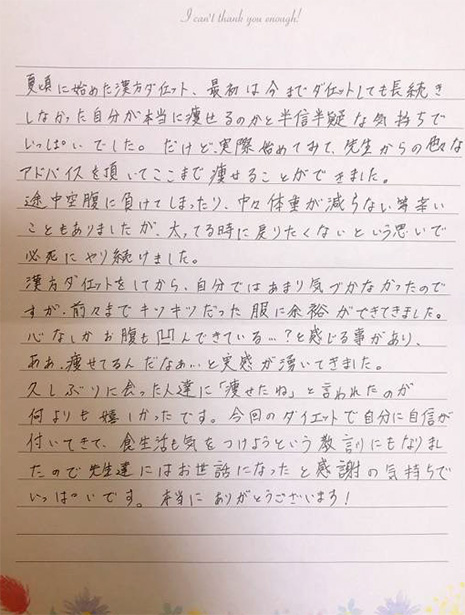 I can't thank you enough!
夏頃に始めた漢方ダイエット、最初は今までダイエットしても長続き
しなかった自分が本当に痩せるのかと半信半疑な気持ちで
いっぱいでした。だけど、実際始めてみて、先生からの色々な
アドバイスを頂いてここまで痩せることができました。
途中空腹に負けてしまったり、中々体重が減らない等辛い
こともありましたが、太ってる時に戻りたくないという思いで
必死にやり続けました。
漢方ダイエットをしてから、自分ではあまり気づかなかったので
すが、前々までキツキツだった服に余裕ができてきました。
心なしかお腹も凹んできている…?と感じる事があり、
ああ、痩せてるんだなぁ…と実感が湧いてきました。
久しぶりに会った人達に「痩せたね」と言われたのが
何よりも嬉しかったです。今回のダイエットで自分に自信が
付いてきて、食生活も気をつけようという教訓にもなりまし
たので先生達にはお世話になったと感謝の気持ちで
いっぱいです。本当にありがとうございます!